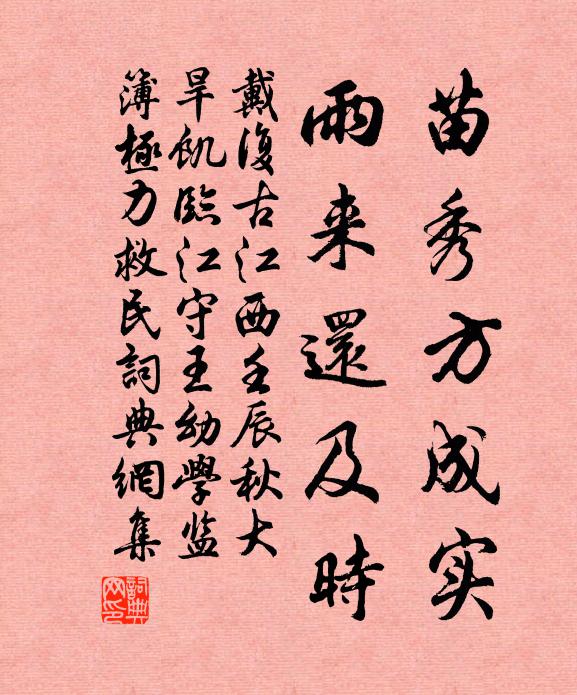 苗秀方成实
雨来還及時
戴復古江西壬辰秋大
旱飢臨江守王幼學監
簿極力救民詞典網集
詞典网印